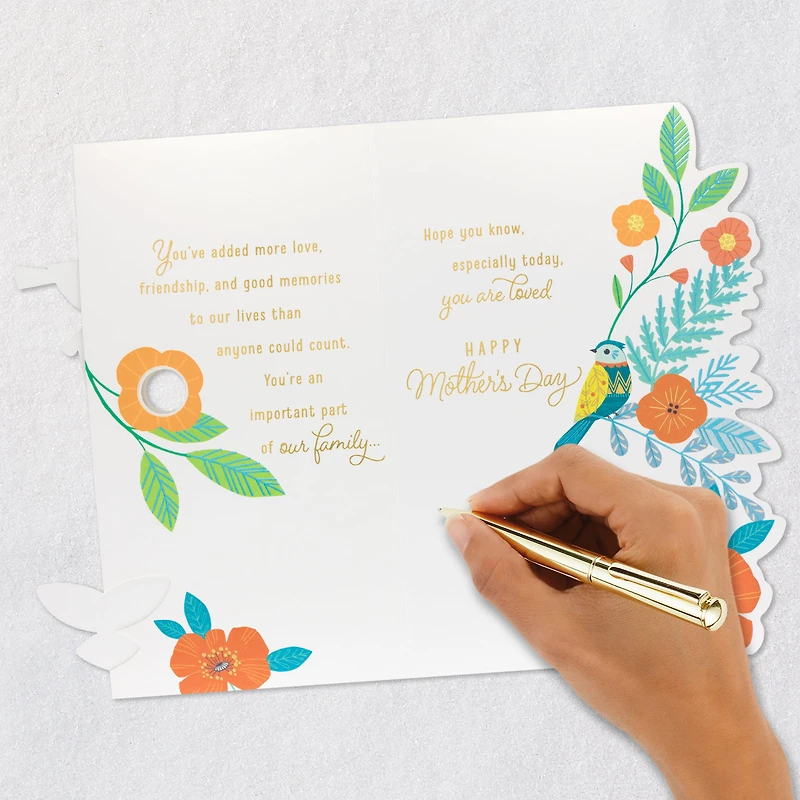 You've added more love,
friendship, and good memories
to our lives than
anyone could count.
You're an
important part
of our family...
Hope you know,
especially today,
you are loved.
HAPPY
Mother's Day